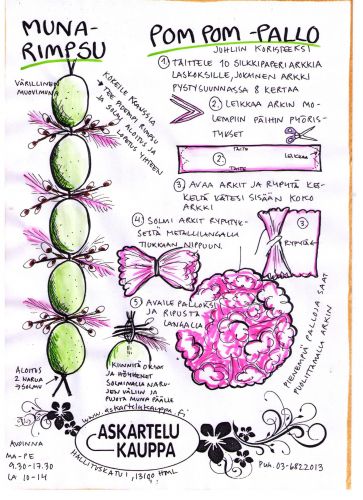 MUNA-
RIMPSU
VÄRILLINEN
MUOVIMUNA
KOKEILE KRANSSIA
→ TEE PIDEMPI RIMPSU
JA SOLMI ALOITUS &
LOPETUS YHTEEN
ALOITUS
2 NARUA
→ SOLMU
KIINNITÄ OKSAT
JA HÖYHENET
SOLMIMALLA NARU-
JEN VÄLIIN JA
PUJOTA MUNA PÄÄLLE
POM POM -PALLO
JUHLIIN KORISTEEKSI
1 TAITTELE 10 SILKKIPAPERIARKKIA
LASKOKSILLE, JOKAINEN ARKKI
PYSTYSUUNNASSA 8 KERTAA
2. LEIKKAA ARKIN MO-
LEMPIIN PÄIHIN PYÖRIS-
TYKSET
TAITE
2.
LEIKKAA
TAITE
3 AVAA ARKIT JA RYPYTÄ KES-
KELTÄ KÄTESI SISÄÄN KOKO
ARKKI
4 SOLMI ARKIT RYPYTYK-
SESTÄ METALLILANGALLA
TIUKKAAN NIPPUUN.
3.
RYPYTÄ
5 AVAILE PALLOKSI
JA RIPUSTA
LANGALLA
PIENEMPIÄ PALLOJA SAAT
PUOLITTAMALLA ARKIN
www.askartelukauppa.fi
ASKARTELU
KAUPPA
HALLITYSKATU 1, 13100 HML
AVOINNA
MA-PE
9.30-17.30
LA 10-14
PUH. 03-6822013